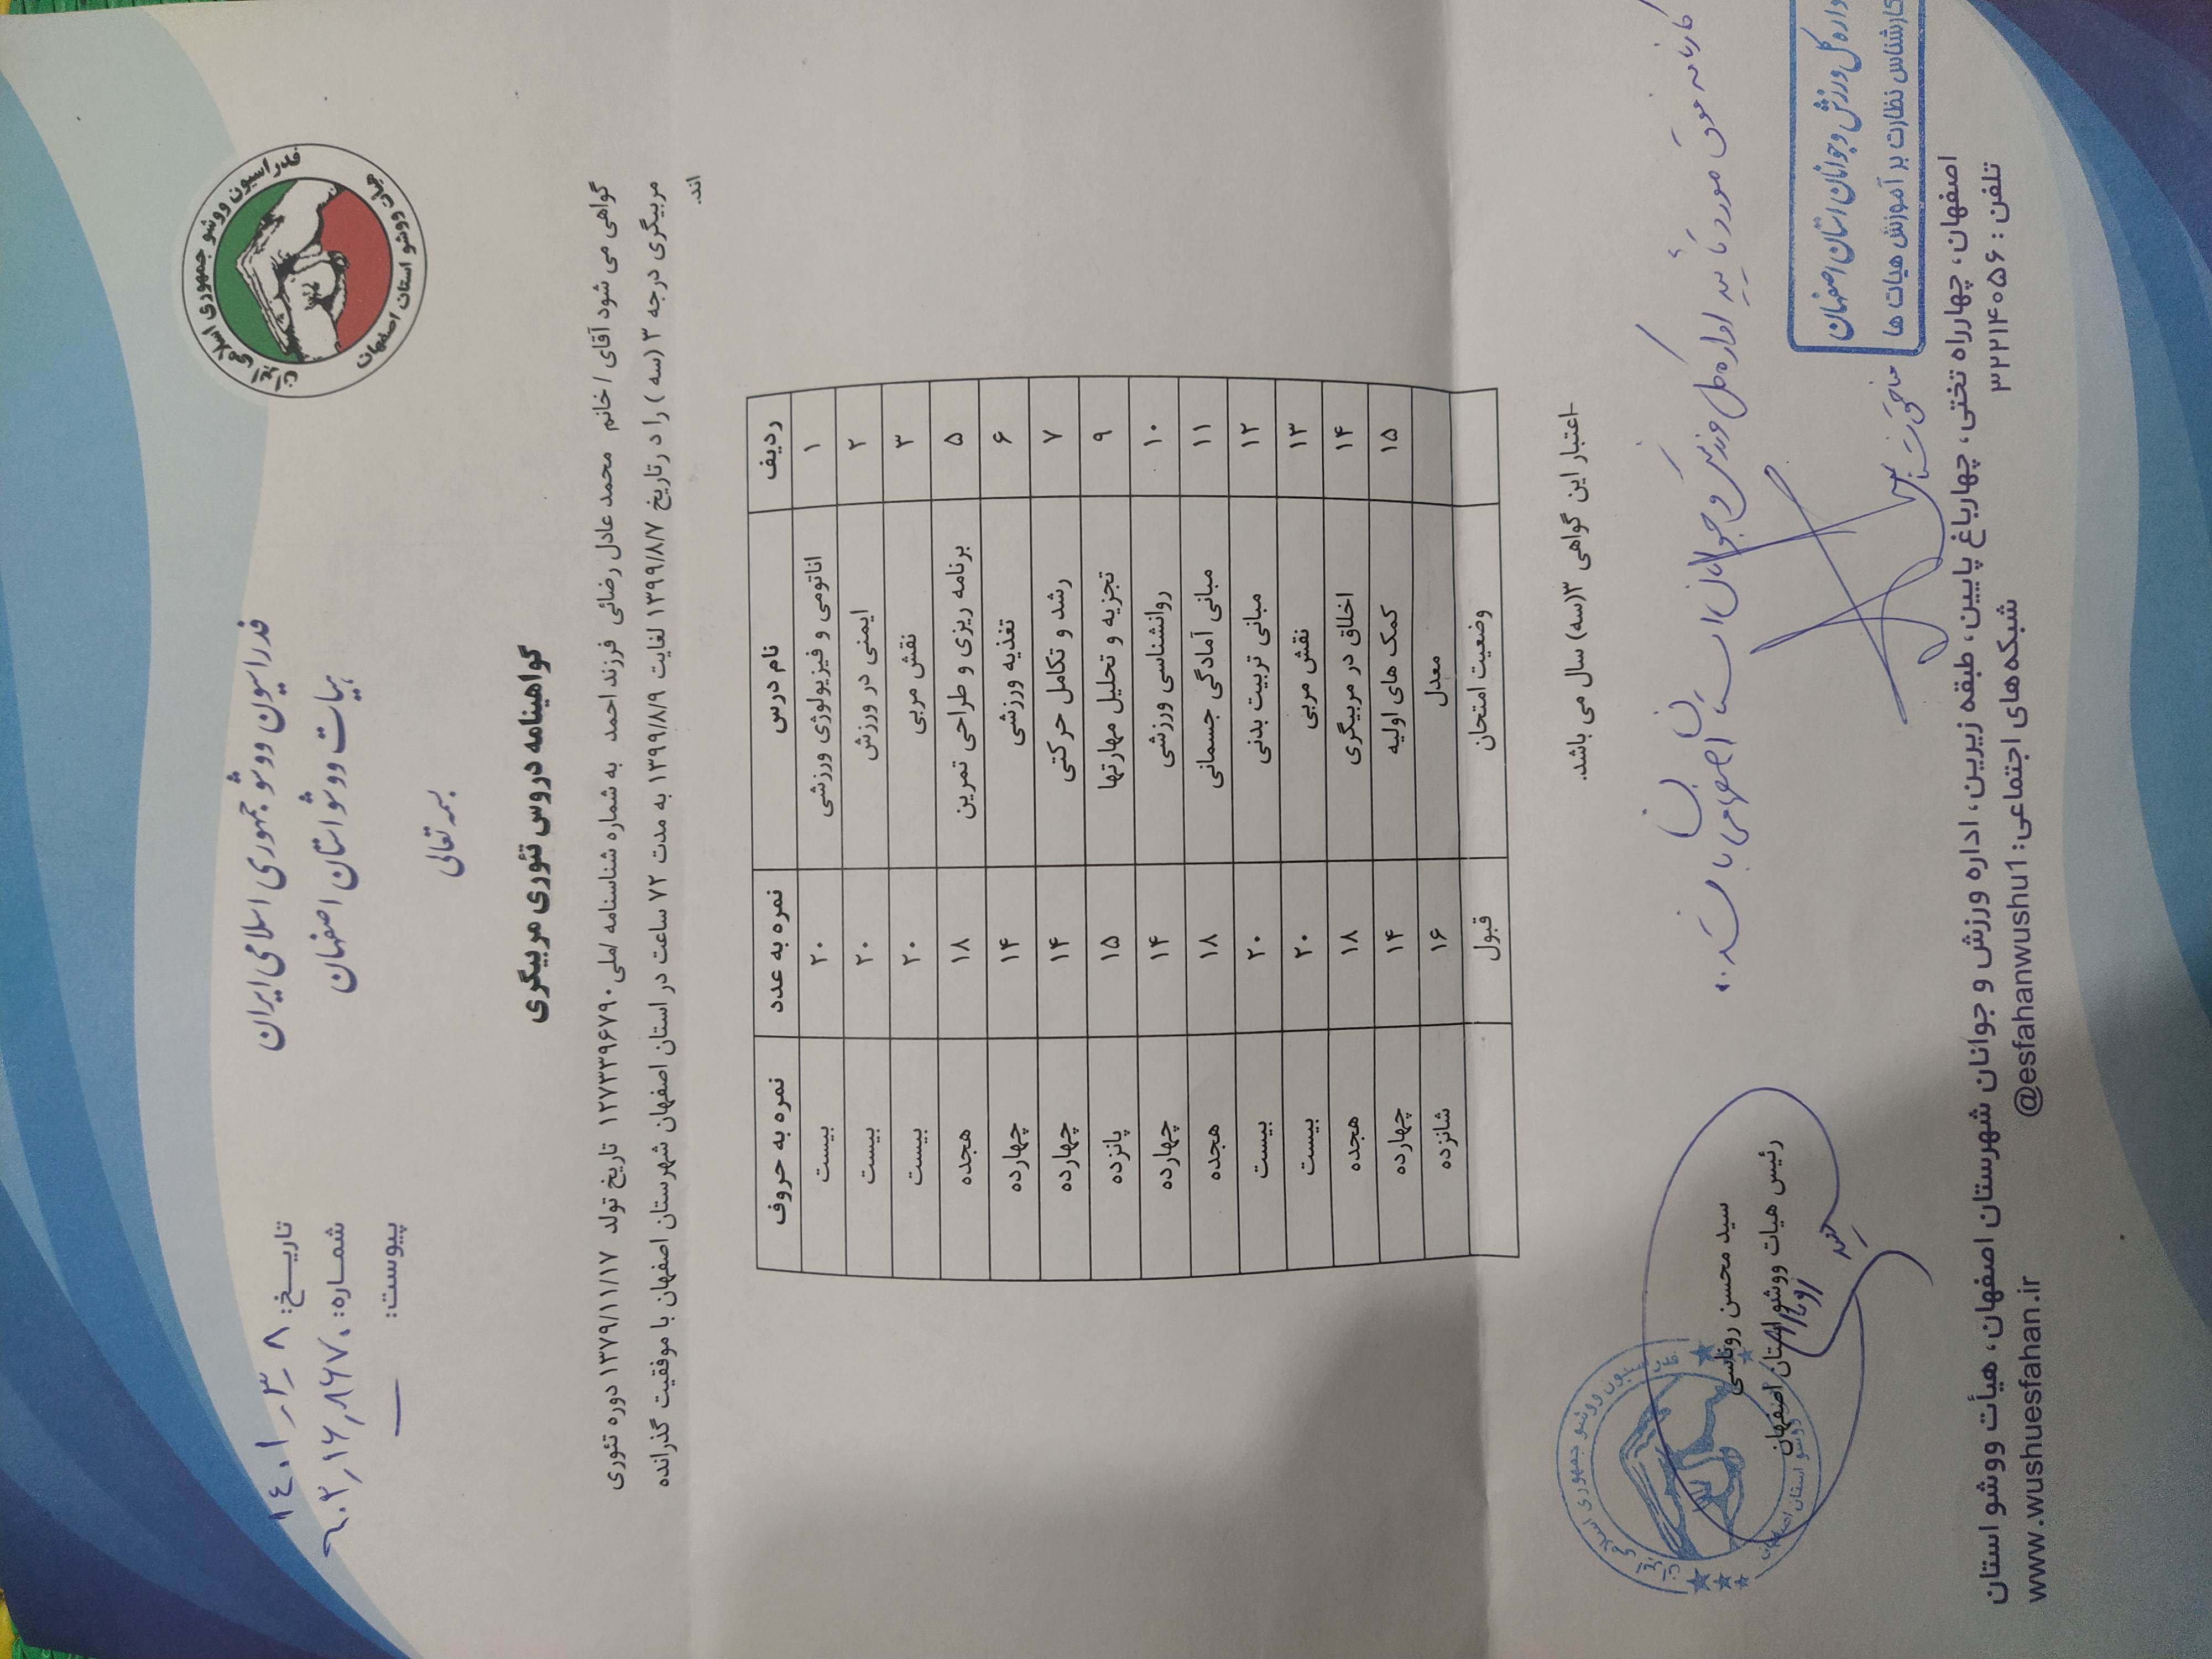 فدراسیون ووشو جمهوری اسلامی ایران
هیات ووشو استان اصفهان
فدراسیون ووشو جمهوری اسلامی ایران
هیات ووشو استان اصفهان
تاریخ: ۱٤۰۱ـ۳ـ۸
شماره:
پیوست: —
بسمه تعالی
گواهینامه دروس تئوری مربیگری
گواهی می شود آقای / خانم محمد عادل رضائی فرزند احمد به شماره شناسنامه /ملی ۱۲۷۳۳۹۶۷۹۰ تاریخ تولد ۱۳۷۹/۱۱/۱۷ دوره تئوری
مربیگری درجه ۳ (سه ) را د رتاریخ ۱۳۹۹/۸/۷ لغایت ۱۳۹۹/۸/۹ به مدت ۷۲ ساعت در استان اصفهان شهرستان اصفهان با موفقیت گذرانده
اند.
ردیف نام درس نمره به عدد نمره به حروف
۱ اناتومی و فیزیولوژی ورزشی ۲۰ بیست
۲ ایمنی در ورزش ۲۰ بیست
۳ نقش مربی ۲۰ بیست
۵ برنامه ریزی و طراحی تمرین ۱۸ هجده
۶ تغذیه ورزشی ۱۴ چهارده
۷ رشد و تکامل حرکتی ۱۴ چهارده
۹ تجزیه و تحلیل مهارتها ۱۵ پانزده
۱۰ روانشناسی ورزشی ۱۴ چهارده
۱۱ مبانی آمادگی جسمانی ۱۸ هجده
۱۲ مبانی تربیت بدنی ۲۰ بیست
۱۳ نقش مربی ۲۰ بیست
۱۴ اخلاق در مربیگری ۱۸ هجده
۱۵ کمک های اولیه ۱۴ چهارده
معدل ۱۶ شانزده
وضعیت امتحان قبول
-اعتبار این گواهی ۳(سه) سال می باشد.
کارنامه فوق مورد تأیید اداره کل ورزش و جوانان استان اصفهان می باشد.
اداره کل ورزش و جوانان استان اصفهان
کارشناس نظارت بر آموزش هیات ها
سید محسن روناسی
رئیس هیات ووشو استان اصفهان
اصفهان، چهارراه تختی، چهارباغ پایین، طبقه زیرین، اداره ورزش و جوانان شهرستان اصفهان، هیأت ووشو استان
تلفن: ۳۲۲۱۴۰۵۶ شبکه‌های اجتماعی: @esfahanwushu1 www.wushuesfahan.ir